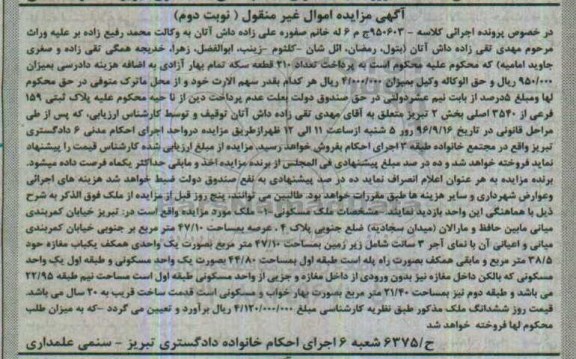 آگهی مزایده اموال غیر منقول ( نوبت دوم)
در خصوص پرونده اجرائی کلاسه ۹۵۰۶۰۳ج م ۶ له خانم صفوره علی زاده داش آتان به وکالت محمد رفیع زاده بر علیه وراث
مرحوم مهدی تقی زاده داش آتان (بتول، رمضان، ائل شان -کلثوم -زینب، ابوالفضل، زهرا، خدیجه همگی تقی زاده و صغری
جاوید امامیه) که محکوم علیه محکوم است به پرداخت تعداد ۲۱۰ قطعه سکه تمام بهار آزادی به اضافه هزینه دادرسی بمیزان
۹۵۰/۰۰۰ ریال و حق الوکاله وکیل بمیزان ۴/۰۰۰/۰۰۰ ریال هر کدام بقدر سهم الارث خود و از محل ماترک متوفی در حق محکوم
لها ومبلغ ۵درصد از بابت نیم عشردولتی در حق صندوق دولت بعلت عدم پرداخت دین از نا حیه محکوم علیه پلاک ثبتی ۱۵۹
فرعی از ۳۵۴۰ اصلی بخش ۲ تبریز متعلق به آقای مهدی تقی زاده داش آتان توقیف و توسط کارشناس ارزیابی، که پس از طی
مراحل قانونی در تاریخ ۹۶/۹/۱۶ روز ۵ شنبه ازساعت ۱۱ الی ۱۲ ظهرازطریق مزایده درواحد اجرای احکام مدنی ۶ دادگستری
تبریز واقع در مجتمع خانواده طبقه ۳ اجرای احکام بفروش خواهد رسید. مزایده از مبلغ ارزیابی شده کارشناس قیمت را پیشنهاد
نماید فروخته خواهد شد و ده در صد مبلغ پیشنهادی فی المجلس از برنده مزایده اخذ و مابقی حداکثر یکماه فرصت داده میشود.
برنده مزایده به هر عنوان اعلام انصراف نماید ده در صد پیشنهادی به نفع صندوق دولت ضبط خواهد شد هزینه های اجرائی
وعوارض شهرداری و سایر هزینه ها طبق مقررات خواهد بود طالبین می توانند، پنج روز قبل از مزایده از ملک فوق الذکر به شرح
ذیل با هماهنگی این واحد بازدید نمایند. مشخصات ملک مسکونی ۱- ملک مورد مزایده واقع است در: تبریز خیابان کمربندی
میانی مابین حافظ و مارالان (میدان سجادیه) ضلع جنوبی پلاک ۴ . عرصه بمساحت ۴۷/۱۰ متر مربع بر جنوبی خیابان کمربندی
میانی و اعیانی آن با نمای آجر ۳ سانت شامل زیر زمین بمساحت ۴۷/۱۰ متر مربع بصورت یک واحدی همکف یکباب مغازه حود
۳۸/۵ متر مربع و مابقی همکف بصورت راه پله است طبقه اول بمساحت ۴۴/۸۰ بصورت یک واحد مسکونی و طبقه اول یک واحد
مسکونی که بالکن داخل مغازه نیز بدون ورودی از داخل مغازه و جزیی از واحد مسکونی طبقه اول است مساحت نیم طبقه ۲۲/۹۵
می باشد و طبقه دوم نیز بمساحت ۲۱/۴۰ متر مربع بصورت بهار خواب و مسکونی است قدمت ساخت قریب به ۲۰ سال می باشد.
قیمت روز ششدانگ ملک مذکور طبق نظریه کارشناسی مبلغ ۴/۱۲۰/۰۰۰/۰۰۰ ریال برآورد و تعیین می گردد –که به میزان طلب
محکوم لها فروخته خواهد شد
ح/۶۳۷۵ شعبه ۶ اجرای احکام خانواده دادگستری تبریز - سنمی علمداری